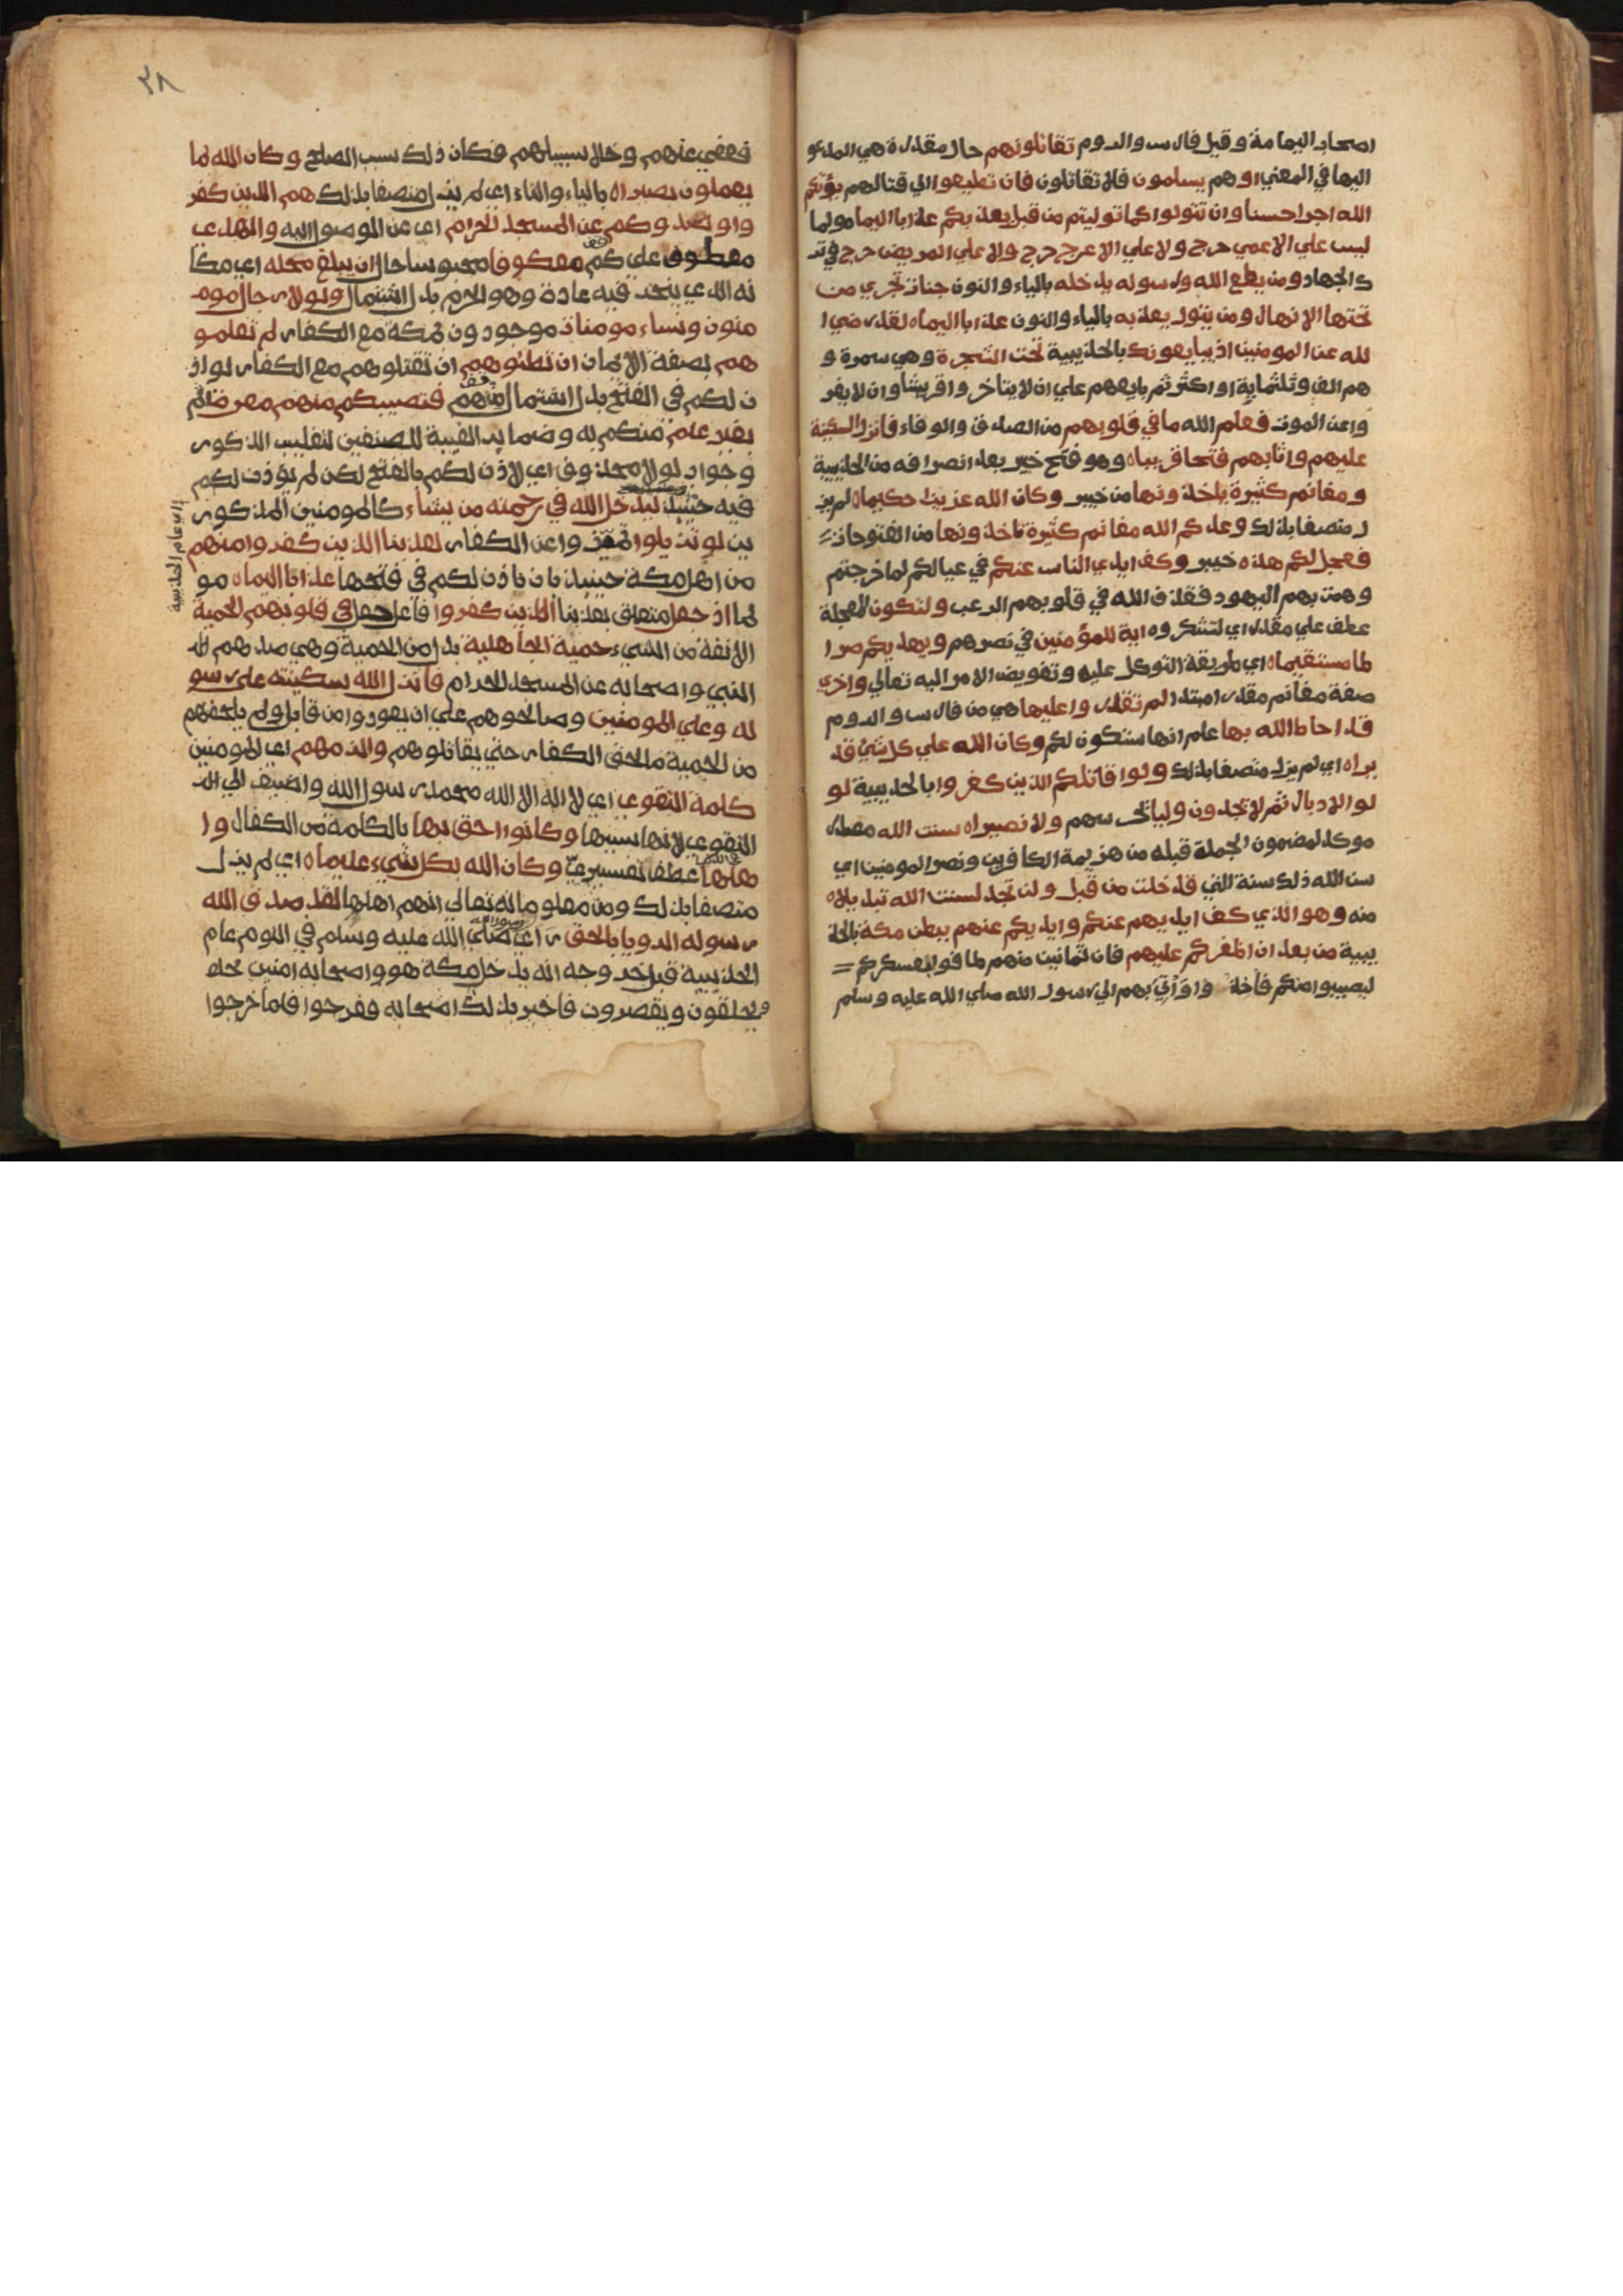 اصحاب اليمامة وقيل فارس والروم تقاتلونهم حال مقدرة هي المدعو
اليها في المعني او هم يسلمون فلا تقاتلون فان تطيعوا الي قتالهم يؤتكم
الله اجرا حسنا وان تتولوا كما توليتم من قبل يعذبكم عذابا اليما مولما
ليس علي الاعمي حرج ولا علي الاعرج حرج ولا علي المريض حرج في تر
ك الجهاد ومن يطع الله ورسوله يدخله بالياء والنون جنات تجري من
تحتها الانهار ومن يتول يعذبه بالياء والنون عذابا اليما ه لقد رضي ا
لله عن المومنين اذ يبايعونك بالحديبية تحت الشجرة وهي سمرة و
هم الف وثلثماية او اكثر ثم بايعهم علي ان لا يناخر واقريشا وان لا يفر
وا عن الموت فعلم الله ما في قلوبهم من الصدق والوفاء فانزل السكينة
عليهم واثابهم فتحا قريبا ه وهو فتح خيبر بعد انصرافه من الحديبية
ومغانم كثيرة ياخذونها من خيبر وكان الله عزيزا حكيما ه لم يز
ل متصفا بذلك وعدكم الله مغانم كثيرة تاخذونها من الفتوحات
فعجل لكم هذه خيبر وكف ايدي الناس عنكم في عيالكم لما خرجتم
وهمت بهم اليهود فقذف الله في قلوبهم الرعب ولتكون المعجلة
عطف علي مقدر اي لتشكروه اية للمؤمنين في نصرهم ويهديكم صرا
طا مستقيما ه اي طريقة التوكل عليه وتفويض الامر اليه تعالي واخري
صفة مغانم مقدر امبتدا لم تقدروا عليها هي من فارس والروم
قد احاط الله بها علم انها ستكون لكم وكان الله علي كل شيء قد
يرا ه اي لم يزل متصفا بذلك ولو قاتلكم الذين كفروا بالحديبية لو
لوا الادبار ثم لا يجدون وليا يحرسهم ولا نصيرا ه سنت الله مصدر
موكد لمضمون الجملة قبله من هزيمة الكافرين ونصر المومنين اي
سن الله ذلك سنة التي قد خلت من قبل ولن تجد لسنت الله تبديلا ه
منه وهو الذي كف ايديهم عنكم وايديكم عنهم ببطن مكة بالحد
يبية من بعد ان اظفركم عليهم فان ثمانين منهم طافوا بعسكركم
ليصيبوا منكم فاخذوا واتي بهم الي رسول الله صلي الله عليه وسلم
٢٨
فعفي عنهم وخلا سبيلهم فكان ذلك سبب الصلح وكان الله بما
يعملون بصيرا ه بالياء والتاء اي لم يزل متصفا بذلك هم الذين كفر
وا وصدوكم عن المسجد الحرام اي عن الوصول اليه والهدي
معطوف علي كم معكوفا محبوسا حال ان يبلغ محله اي مكا
نه الذي ينحر فيه عادة وهو الحرم بدل اشتمال ولولا رجال موم
منون ونساء مومنات موجودون بمكة مع الكفار لم تعلمو
هم بصفة الايمان ان تطئوهم ان تقتلوهم مع الكفار لو اذ
ن لكم في الفتح بدل اشتمال منهم فتصيبكم منهم معرة اثم
بغير علم منكم به وضماير الغيبة للصنفين لتغليب الذكور
وجواب لولا محذوف اي لاذن لكم بالفتح لكن لم يؤذن لكم
فيه حينيذ ليدخل الله في رحمته من يشاء كالمومنين المذكور
ين لو تزيلوا تميزوا عن الكفار لعذبنا الذين كفروا منهم
من اهل مكة حينيذ بان ياذن لكم في فتحها عذابا اليما ه مو
لما اذ جعل متعلق بعذبنا الذين كفروا فاعل جعل في قلوبهم الحمية
الانفة من الشيء حمية الجاهلية بدل من الحمية وهي صدهم
النبي واصحابه عن المسجد الحرام فانزل الله سكينته علي رسو
له وعلي المومنين وصالحوهم علي ان يعودوا من قابل ولم يلحقهم
من الحمية ما لحق الكفار حتي يقاتلوهم والزمهم اي المومنين
كلمة التقوي اي لا اله الا الله محمد رسول الله واضيف الي
التقوي لانها سببها وكانوا احق بها بالكلمة من الكفار وا
هلها عطف تفسيري وكان الله بكل شيء عليما ه اي لم يزل
متصفا بذلك ومن معلومه انه تعالي انهم اهلها لقد صدق الله
رسوله الرويا بالحق راي رسول الله صلي الله عليه وسلم في النوم عام
الحديبية قبل خروجه انه يدخل مكة هو واصحابه امنين
ويحلقون ويقصرون فاخبر بذلك اصحابه ففرحوا فلما خرجوا
اي عام الحديبية